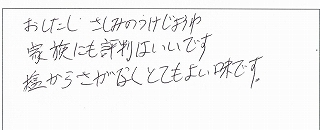 おしたじ さしみのうけじょうゆ
家族にも評判はいいです
塩からさがなくとてもよい味です。